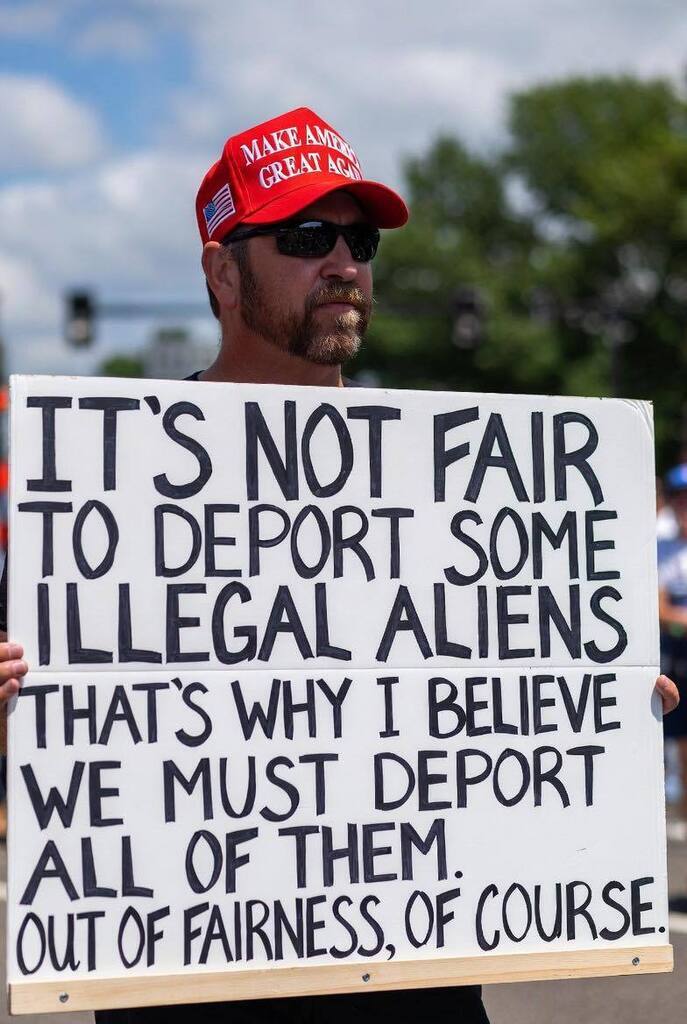 MAKE AMERI
GREAT AGA
IT'S NOT FAIR
TO DEPORT SOME
ILLEGAL ALIENS
THAT'S WHY I BELIEVE
WE MUST DEPORT
ALL OF THEM.
OUT OF FAIRNESS, OF COURSE.